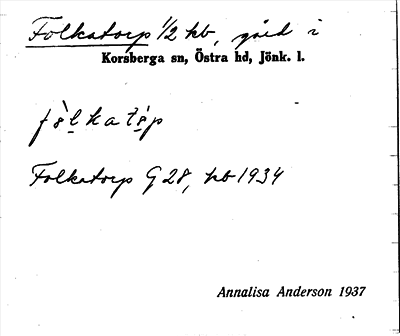 Folkatorp 1/2 kb, gård i
Korsberga sn, Östra hd, Jönk. l.
fòlkatòp
Folkatorp G 28, kb 1934
Annalisa Anderson 1937